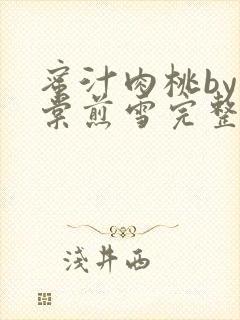 蜜汁肉桃by
棠煎雪完整
浅井西